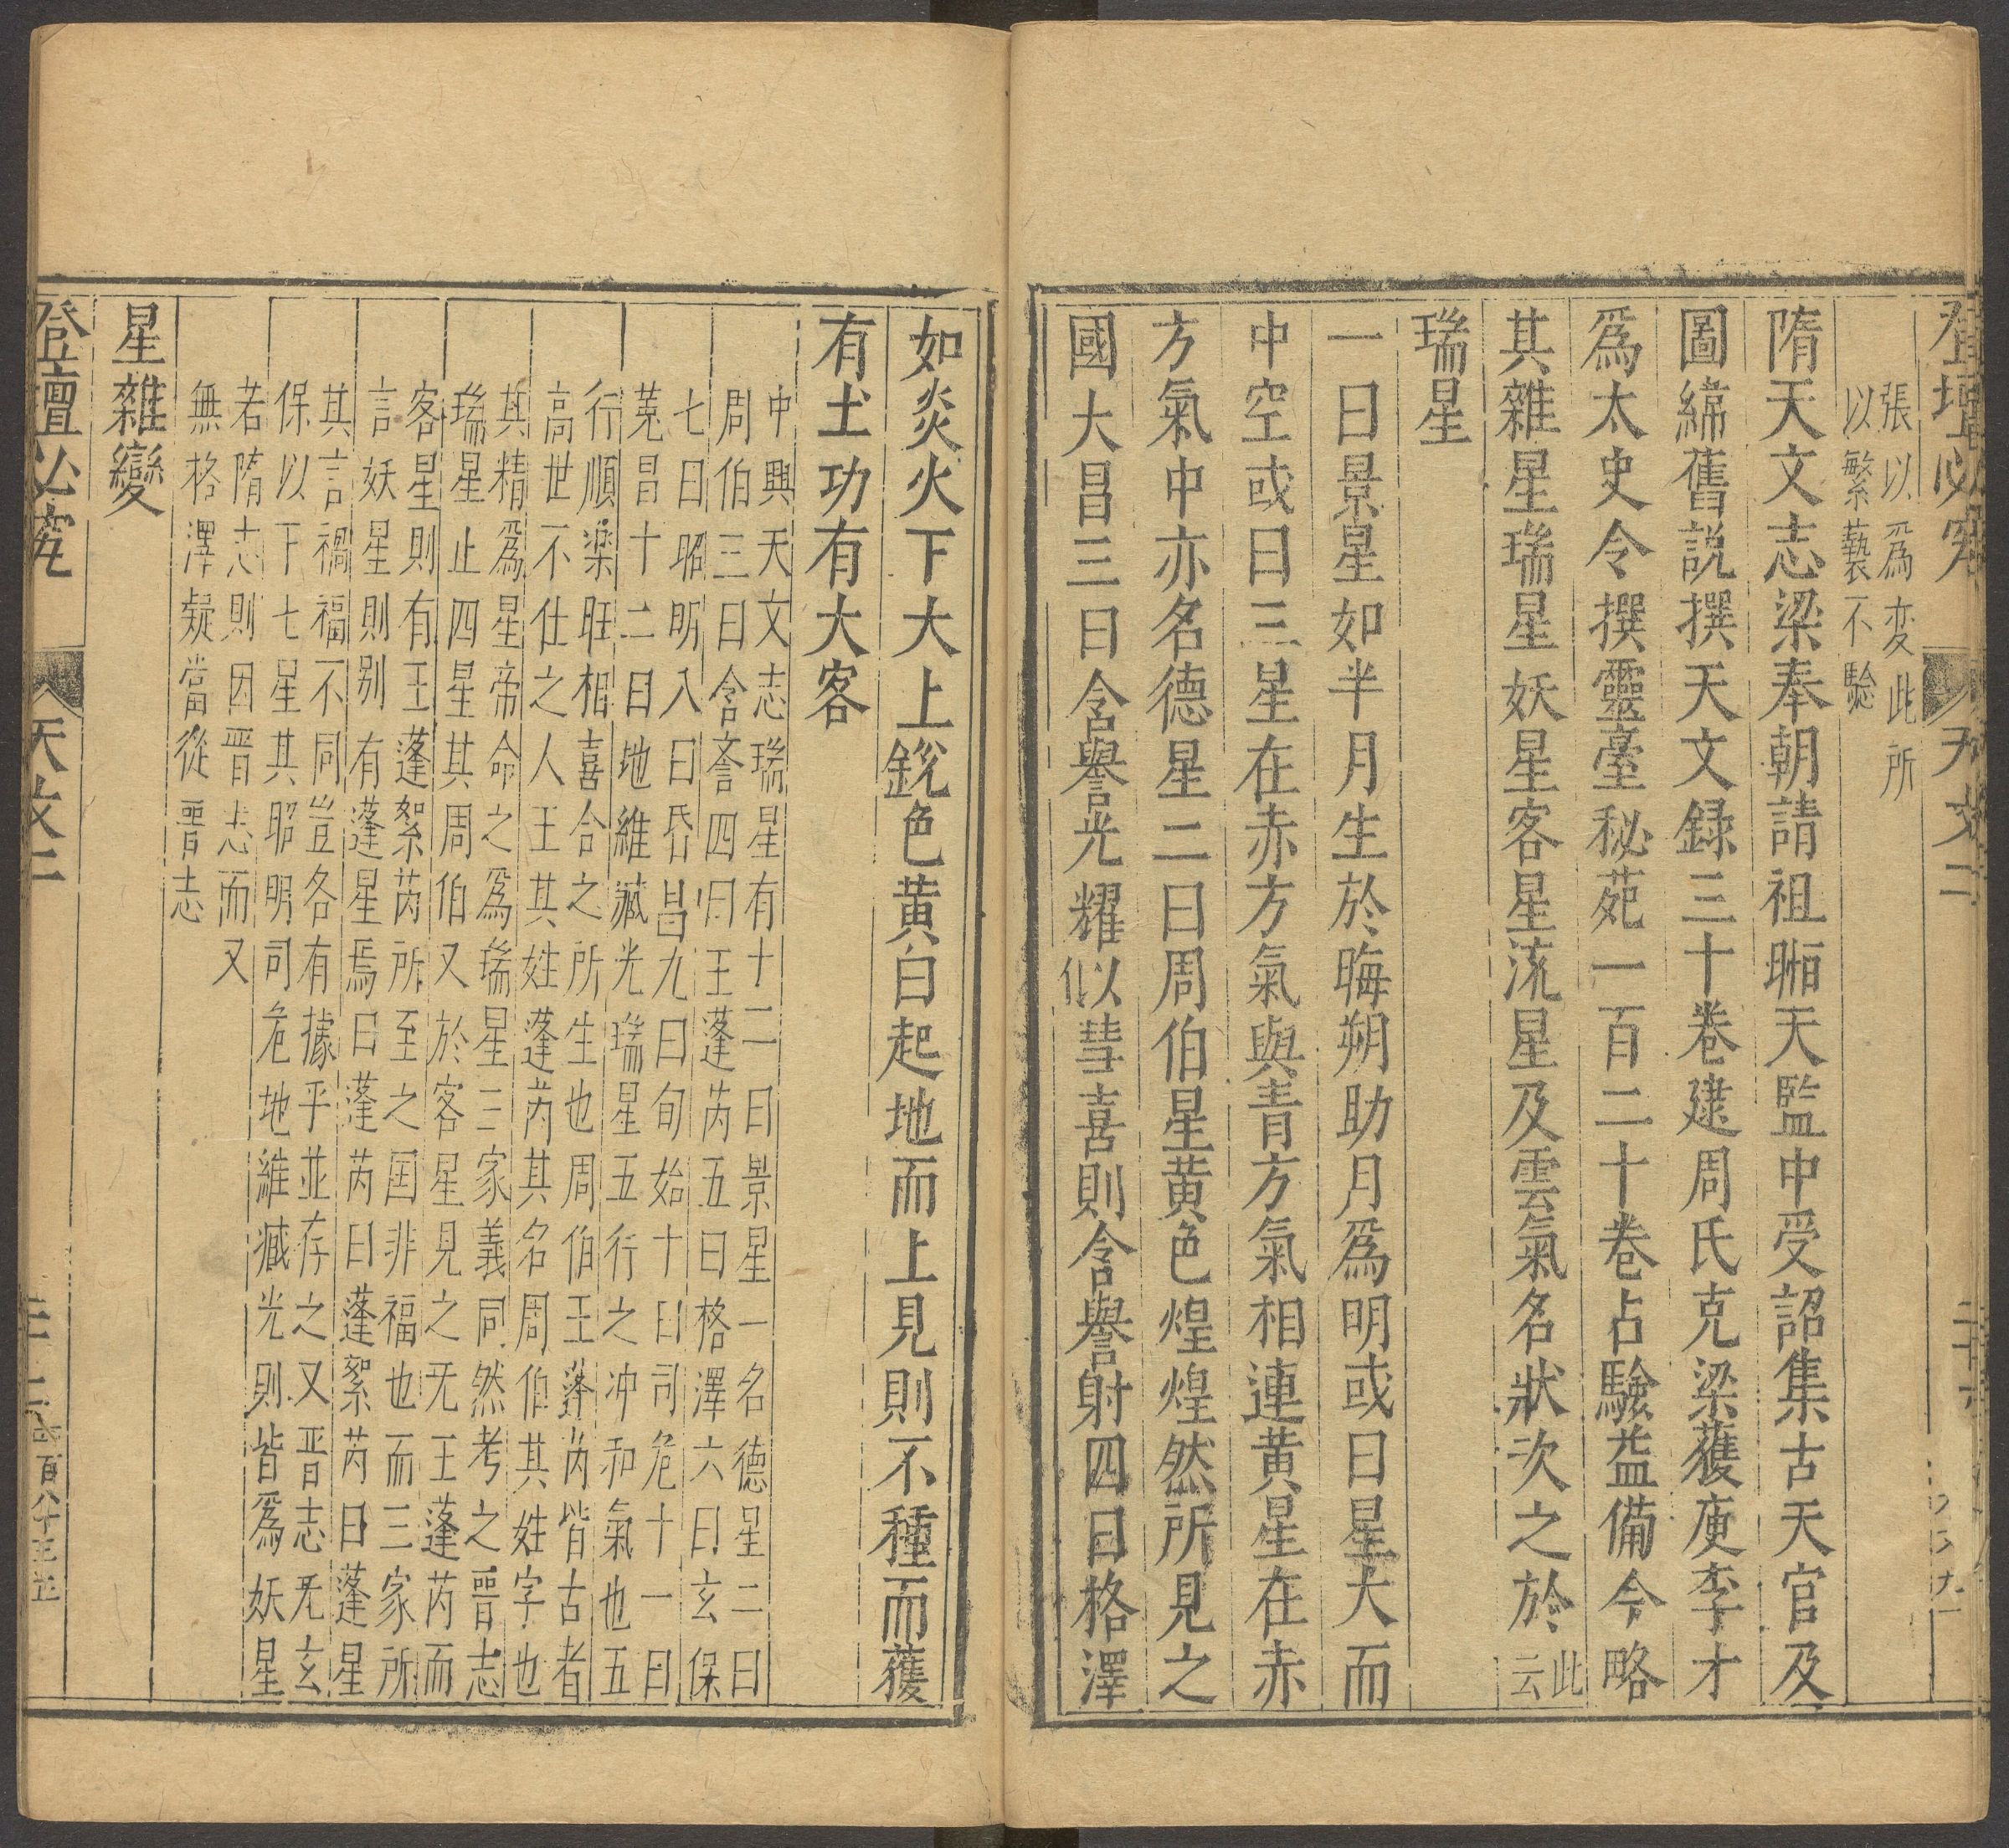 登壇必究
天文二
張以爲変此所
以繁藝不驗
隋天文志梁奉朝請祖暅天監中受詔集古天官及
圖緯舊説撰天文録三十卷逮周氏克梁獲庾季才
爲太史令撰靈臺秘苑一百二十卷占驗益備今略
其雜星瑞星妖星客星流星及雲氣名狀次之於此
云
瑞星
一曰景星如半月生於晦朔助月爲明或曰星大而
中空或曰三星在赤方氣與青方氣相連黄星在赤
方氣中亦名德星二曰周伯星黄色煌煌然所見之
國大昌三曰含譽光耀似彗喜則含譽射四曰格澤
如炎火下大上銳色黄白起地而上見則不種而獲
有土功有大客
中興天文志瑞星有十二曰景星一名德星二曰
周伯三曰含誉四曰王蓬芮五曰格澤六曰玄保
七曰昭明八曰昏昌九曰旬始十曰司危十一曰
菟昌十二曰地維臧光瑞星五行之冲和氣也五
行順楽旺相喜合之所生也周伯王蓬芮皆古者
高世不仕之人王其姓蓬芮其名周伯其姓字也
其精爲星帝命之爲瑞星三家義同然考之晋志
瑞星止四星其周伯又於客星見之无王蓬芮而
客星則有王蓬絮芮所至之国非福也而三家所
言妖星則别有蓬星焉曰蓬芮曰蓬絮芮曰蓬星
其言禍福不同豈各有據乎並存之又晋志无玄
保以下七星其昭明司危地維臧光則皆爲妖星
若隋志則因晋志而又
無格澤疑當從晋志
星雜變
登壇必究
天文二